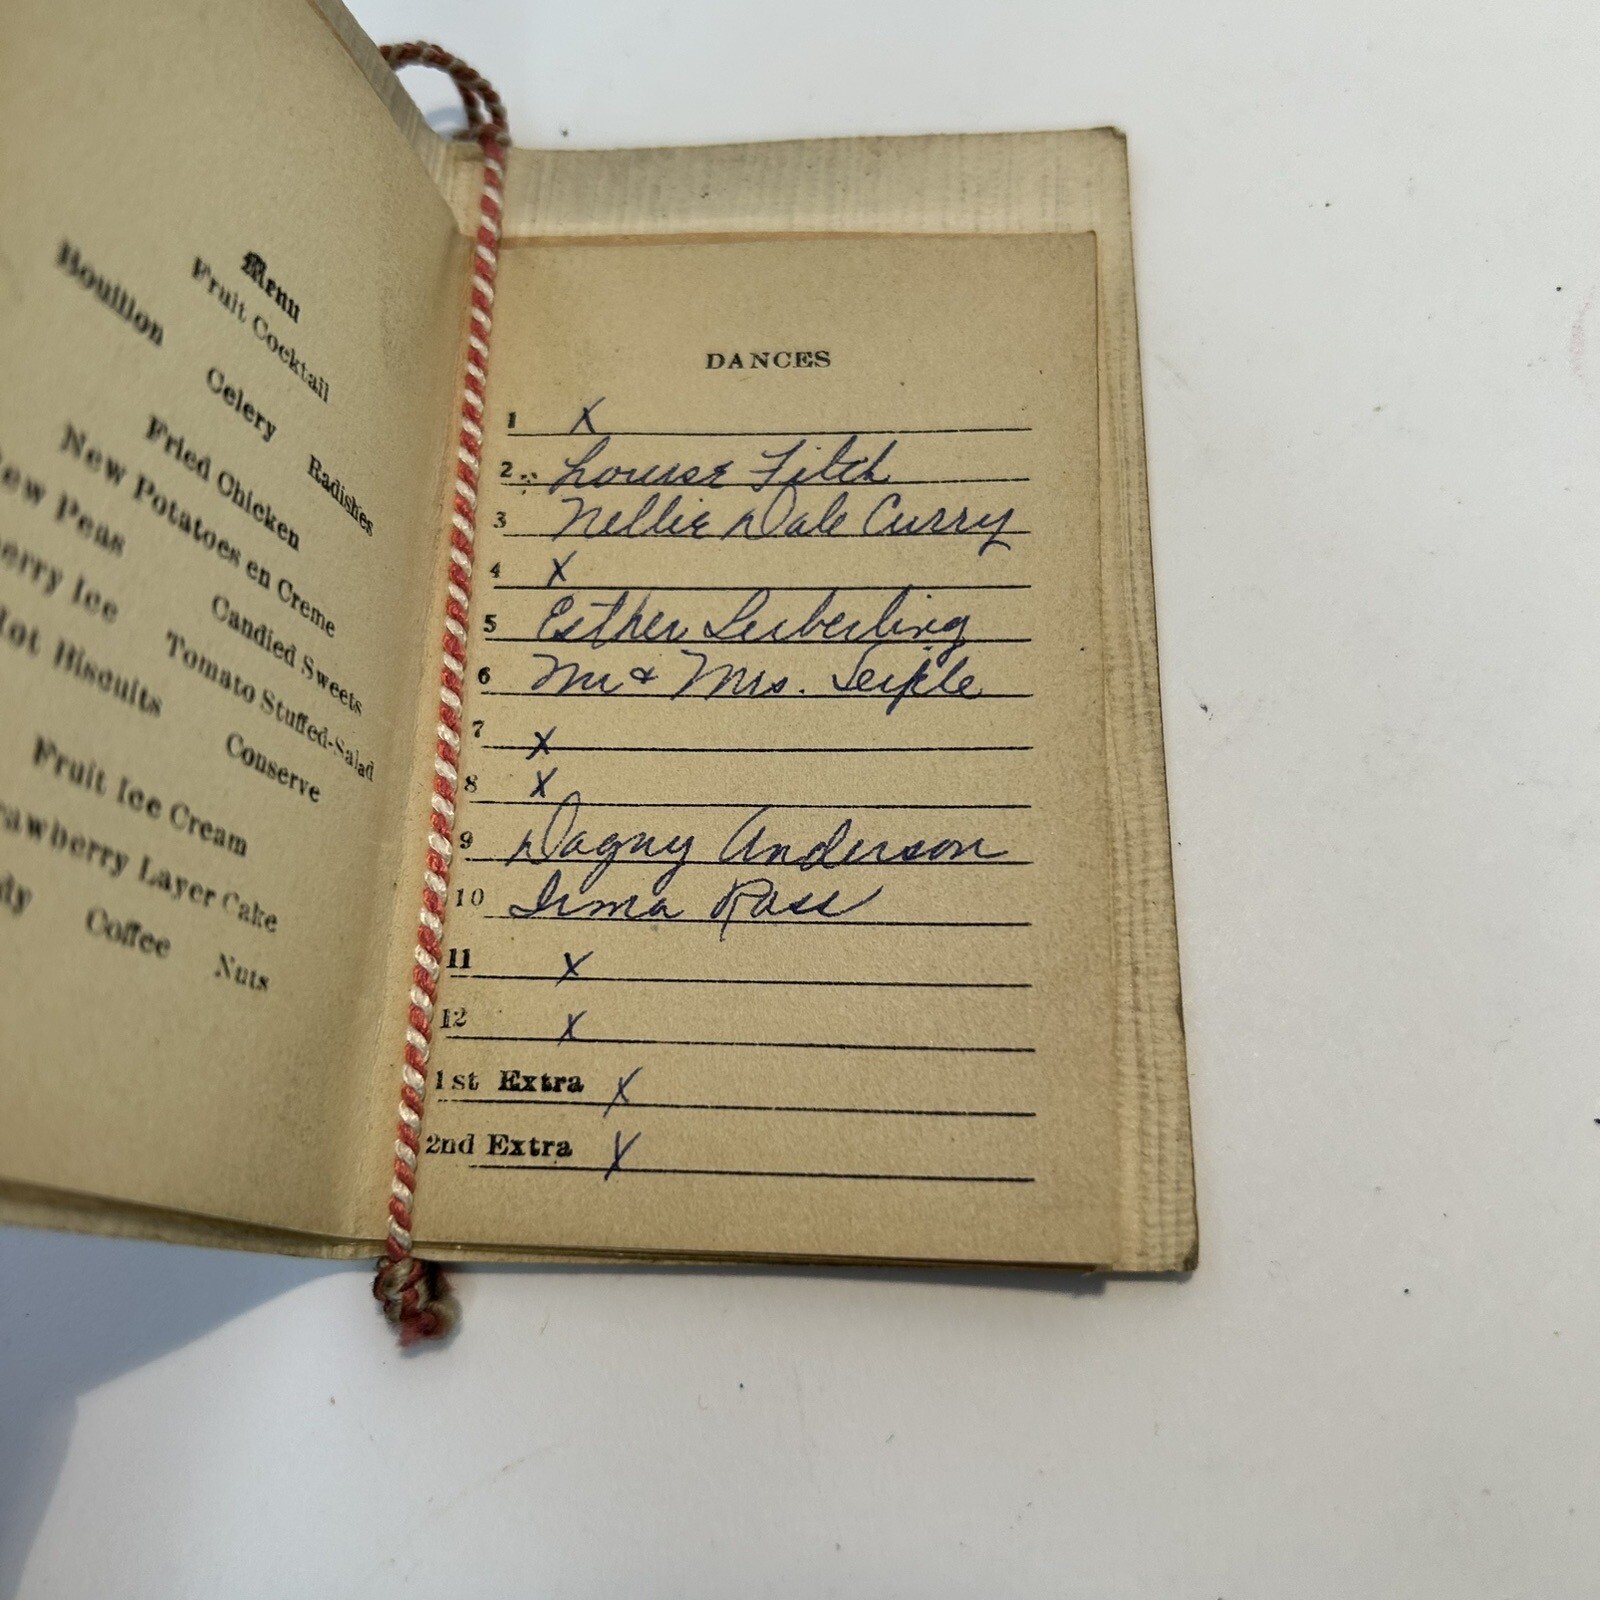 Menu
Fruit Cocktail
Bouillon
Celery Radishes
Fried Chicken
New Potatoes en Creme
Peas Candied Sweets
Ice Tomato Stuffed-Salad
Hot Biscuits Conserve
Fruit Ice Cream
Layer Cake
Coffee Nuts
DANCES
1 X
2 Louise Fitch
3 Nellie Dale Curry
4 X
5 Esther
6 Mr & Mrs. Seiple
7 X
8 X
9 Dagny Anderson
10 Irma
11 X
12 X
1st Extra X
2nd Extra X